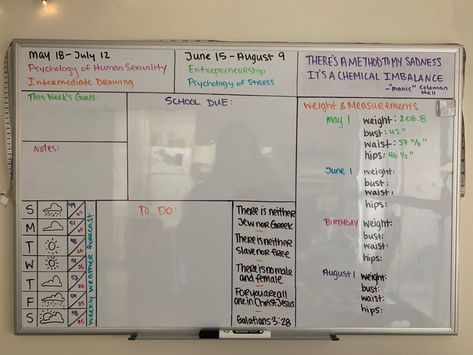 May 18-July 12
Psychology of Human Sexuality
Intermediate Drawing
June 15-August 9
Entrepreneurship
Psychology of Stress
THERE'S A METHOD TO MY SADNESS
IT'S A CHEMICAL IMBALANCE
-"manic" Coleman
Hell
This Week's Goals:
Notes:
SCHOOL DUE:
Weight & Measurements
May 1
weight: 208.8
bust: 42"
waist: 37
hips: 46 1/2"
June 1
weight:
bust:
waist:
hips:
BIRTHDAY
weight:
bust:
waist:
hips:
August 1
weight:
bust:
waist:
hips:
S
M
T
W
T
F
S
weekly weather forecast
TO DO:
There is neither
Jew nor Greek
There is neither
slave nor free
There is no male
and female
For you are all
one in Christ Jesus
Galatians 3:28